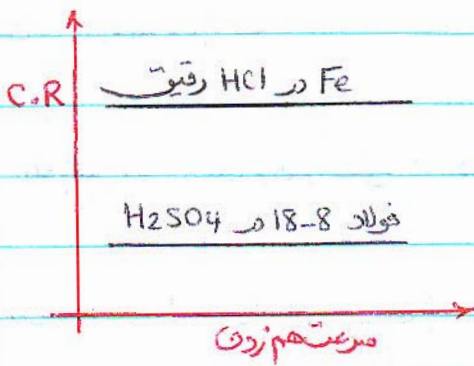 C.R
Fe در HCl رقیق
فولاد 18-8 در H2SO4
سرعت هم زدن